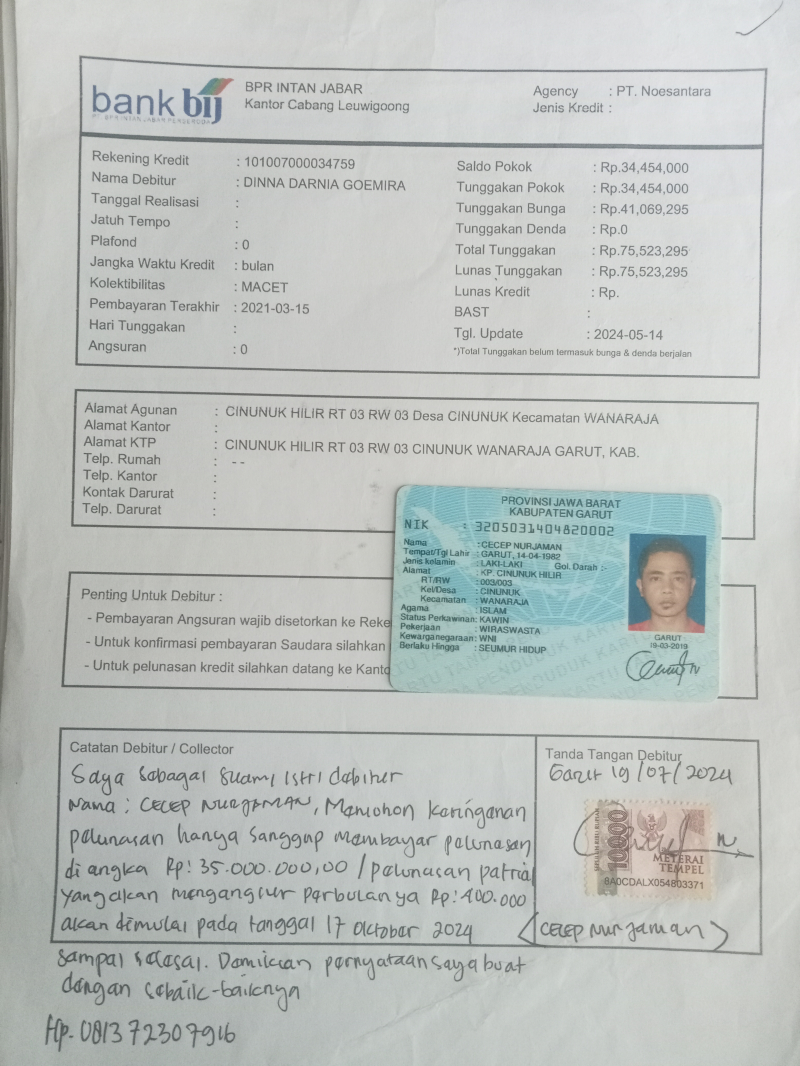 bank bij
PT. BPR INTAN JABAR PERSERODA
BPR INTAN JABAR
Kantor Cabang Leuwigoong
Agency : PT. Noesantara
Jenis Kredit :
Rekening Kredit : 101007000034759
Nama Debitur : DINNA DARNIA GOEMIRA
Tanggal Realisasi :
Jatuh Tempo :
Plafond : 0
Jangka Waktu Kredit : bulan
Kolektibilitas : MACET
Pembayaran Terakhir : 2021-03-15
Hari Tunggakan :
Angsuran : 0
Saldo Pokok : Rp.34,454,000
Tunggakan Pokok : Rp.34,454,000
Tunggakan Bunga : Rp.41,069,295
Tunggakan Denda : Rp.0
Total Tunggakan : Rp.75,523,295
Lunas Tunggakan : Rp.75,523,295
Lunas Kredit : Rp.
BAST :
Tgl. Update : 2024-05-14
*)Total Tunggakan belum termasuk bunga & denda berjalan
Alamat Agunan : CINUNUK HILIR RT 03 RW 03 Desa CINUNUK Kecamatan WANARAJA
Alamat Kantor :
Alamat KTP : CINUNUK HILIR RT 03 RW 03 CINUNUK WANARAJA GARUT, KAB.
Telp. Rumah : --
Telp. Kantor :
Kontak Darurat :
Telp. Darurat :
PROVINSI JAWA BARAT
KABUPATEN GARUT
NIK : 3205031404820002
Nama : CECEP NURJAMAN
Tempat/Tgl Lahir : GARUT, 14-04-1982
Jenis kelamin : LAKI-LAKI Gol. Darah :-
Alamat : KP. CINUNUK HILIR
RT/RW : 003/003
Kel/Desa : CINUNUK
Kecamatan : WANARAJA
Agama : ISLAM
Status Perkawinan: KAWIN
Pekerjaan : WIRASWASTA
Kewarganegaraan: WNI
Berlaku Hingga : SEUMUR HIDUP
GARUT
19-03-2019
Penting Untuk Debitur :
- Pembayaran Angsuran wajib disetorkan ke Reke
- Untuk konfirmasi pembayaran Saudara silahkan
- Untuk pelunasan kredit silahkan datang ke Kanto
Catatan Debitur / Collector
Saya sebagai suami istri debitur
Nama : CECEP NURJAMAN, Memohon keringanan
pelunasan hanya sanggup membayar pelunasan
di angka Rp: 35.000.000,00 / pelunasan patrial
yang akan mengangsur perbulanya Rp: 400.000
akan dimulai pada tanggal 17 Oktober 2024
sampai selesai. Demikian pernyataan saya buat
dengan sebaik-baiknya
Hp. 081372307916
Tanda Tangan Debitur
Garut 19/07/2024
10000
METERAI
TEMPEL
8A0CDALX054803371
(CECEP Nurjaman)